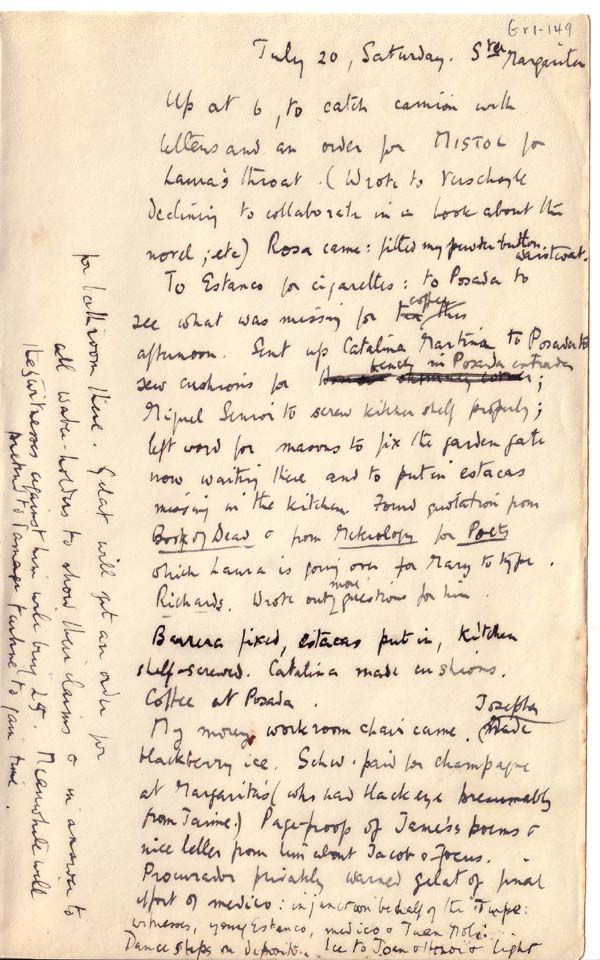 GV1-149
July 20, Saturday. Sta Margarita
Up at 6, to catch camion with
letters and an order for MISTOL for
Laura's throat. (Wrote to Verschoyle
declining to collaborate in a book about the
novel; etc) Rosa came: fitted my powder button waistcoat.
To Estanco for cigarettes: to Posada to
see what was missing for tea coffee this
afternoon. Sent up Catalina Martina to Posada to
sew cushions for bench in Posada entrada;
Miguel Senior to screw kitchen shelf properly;
left word for masons to fix the garden gate
now waiting there and to put in estacas
missing in the kitchen. Found quotation from
Book of Dead & from Meterology for Poets
which Laura is going over for Mary to type.
Richards. Wrote out more questions for him.
Barrera fixed, estacas put in, kitchen
shelf screwed. Catalina made cushions.
Coffee at Posada.
My money, workroom chair came. Josepha made
blackberry ice. Schw. paid for champagne
at Margarita's (who had black eye presumably
from Jaime.) Page-proofs of James's poems &
nice letter from him about Jacob & Focus.
Procurador privately warned Gelat of final
effort of medico: injunction behalf of the
witnesses, young Estanco, medico & Juan
Dance steps on deposito. Ice to Joan & Honor & light
for bathroom there. Gelat will get an order for
all water-holders to show their claims & in answer to
the 5 witnesses against him will bring 25. Meanwhile will
pretend to damage turbine to gain time.